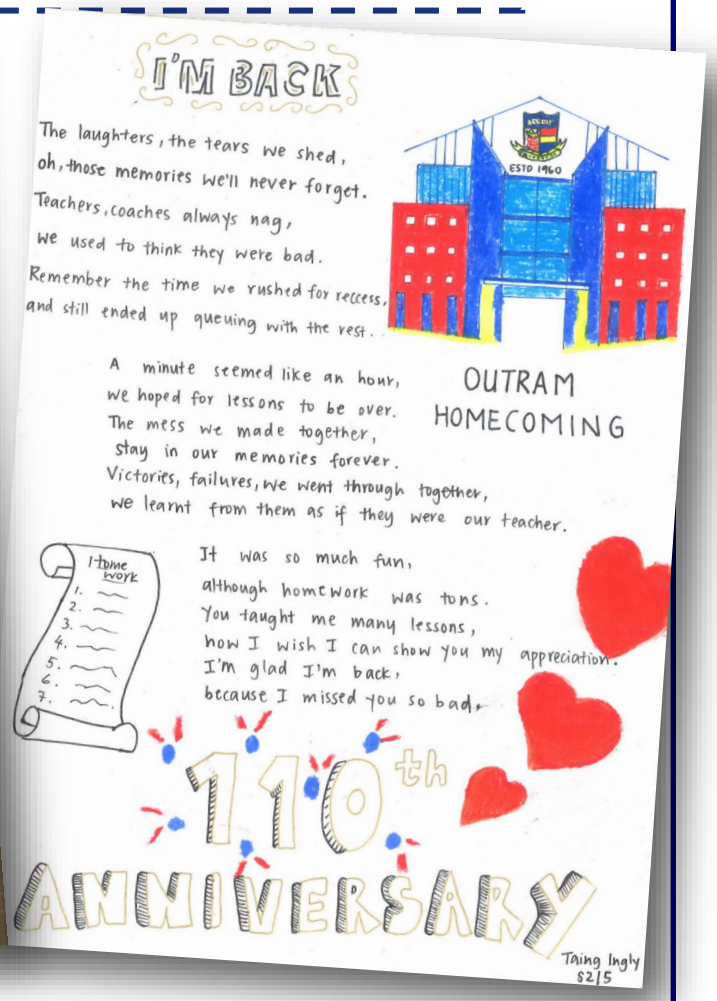 I'M BACK
The laughters, the tears we shed,
oh, those memories we'll never forget.
Teachers, coaches always nag,
we used to think they were bad.
Remember the time we rushed for reccess,
and still ended up queuing with the rest.
ESTD 1960
OUTRAM
HOMECOMING
A minute seemed like an hour,
we hoped for lessons to be over.
The mess we made together,
stay in our memories forever.
Victories, failures, we went through together,
we learnt from them as if they were our teacher.
Home
work
1.
2.
3.
4.
5.
6.
7.
It was so much fun,
although homework was tons.
You taught me many lessons,
how I wish I can show you my appreciation.
I'm glad I'm back,
because I missed you so bad.
110th
ANNIVERSARY
Taing Ingly
S2/5